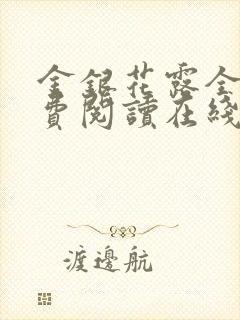 金銀花露全
費閱讀在綫
渡邊航